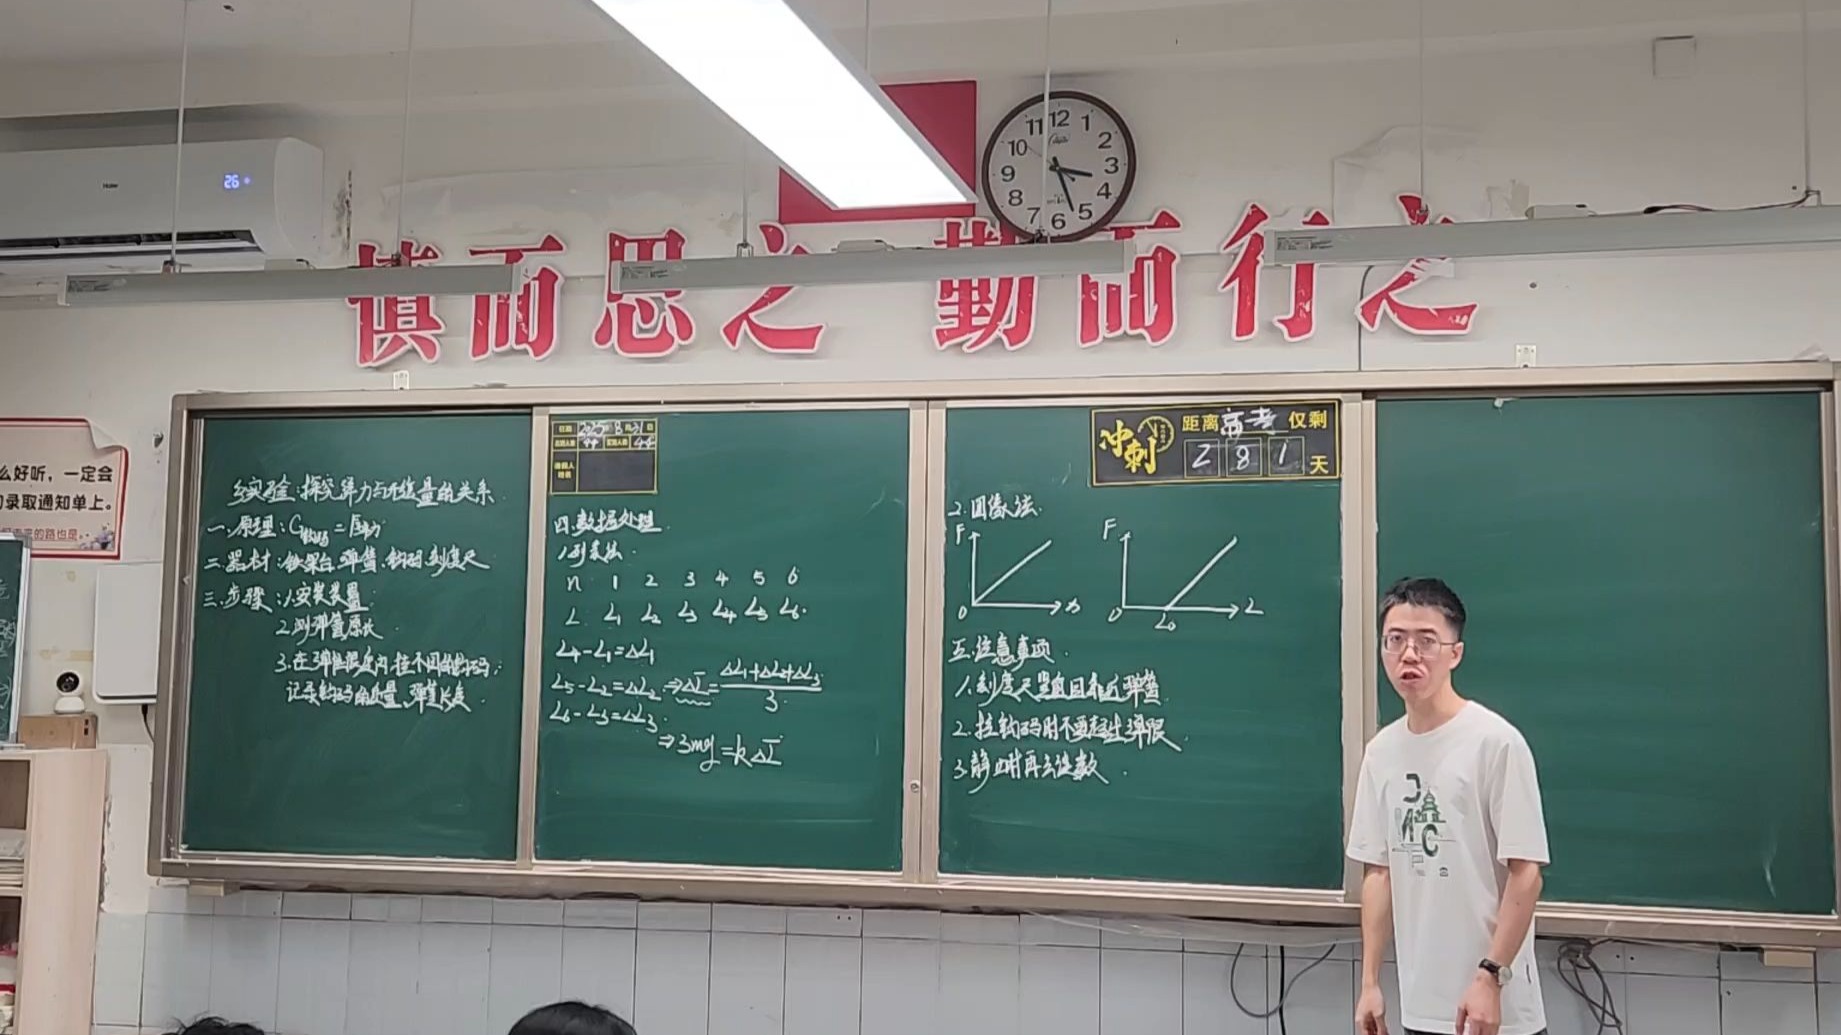 Haier
26
慎而思之 勤而行之
么好听，一定会
录取通知单上。
来的路也是
12 1 2 3 4 5 6 7 8 9 10 11
实验:探究弹力与形变量的关系
一.原理:G钩码=F弹力
二.器材:铁架台.弹簧.钩码.刻度尺
三.步骤:1.安装装置
2.测弹簧原长
3.在弹性限度内挂不同的钩码,
记录钩码的质量、弹簧长度.
日期 2025年8月31日
44 44
请假人
姓名
四.数据处理
1.列表法.
n 1 2 3 4 5 6
L L₁ L₂ L₃ L₄ L₅ L₆.
L₄-L₁=ΔL₁
L₅-L₂=ΔL₂ ⇒ΔL̄=(ΔL₁+ΔL₂+ΔL₃)/3.
L₆-L₃=ΔL₃.
⇒3mg=kΔL̄
冲刺 距离高考仅剩
281天
2.图像法.
F F
0 x 0 L₀ L
五.注意事项.
1.刻度尺竖直且靠近弹簧
2.挂钩码时不要超过弹限
3.静止时再去读数.